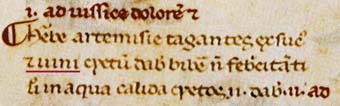 i. ad uissice dolorē ⁊
Herbe artemisie tagantes ex suc
⁊ uini cretū dab bibe n̄ febcitāti
in aqua calida cretos .ii. dab. ii. ad